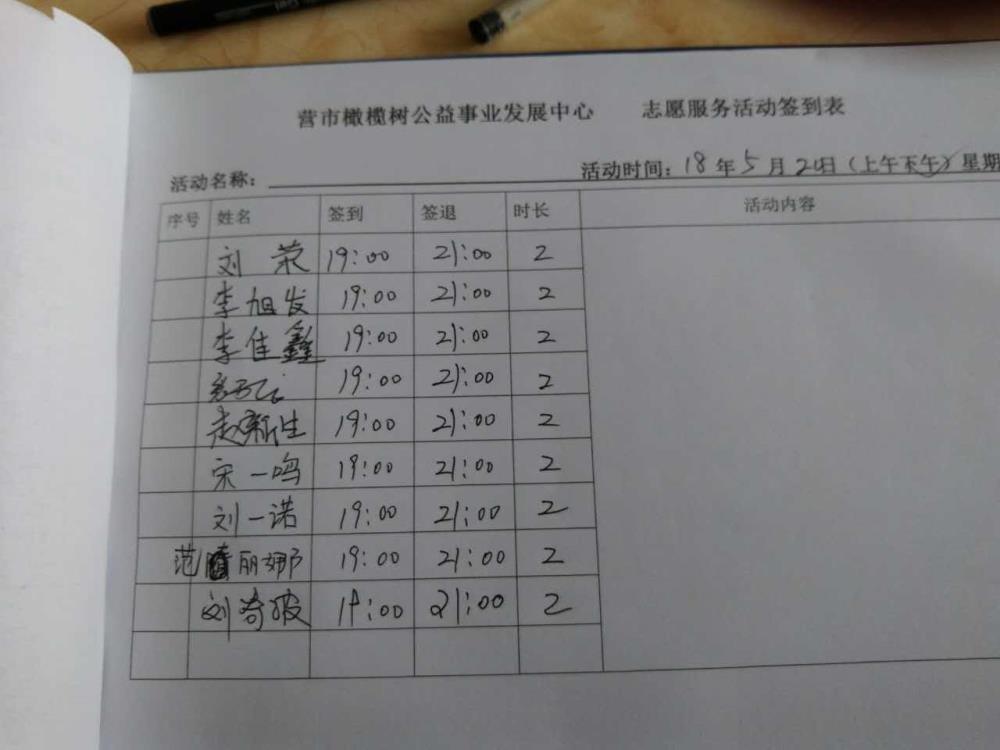 营市橄榄树公益事业发展中心 志愿服务活动签到表
活动名称: 活动时间:18年5月20日(上午下午)星期
序号 姓名 签到 签退 时长 活动内容
刘荣 19:00 21:00 2
李旭发 19:00 21:00 2
李佳鑫 19:00 21:00 2
19:00 21:00 2
赵新生 19:00 21:00 2
宋一鸣 19:00 21:00 2
刘一诺 19:00 21:00 2
范丽娜 19:00 21:00 2
刘奇波 19:00 21:00 2